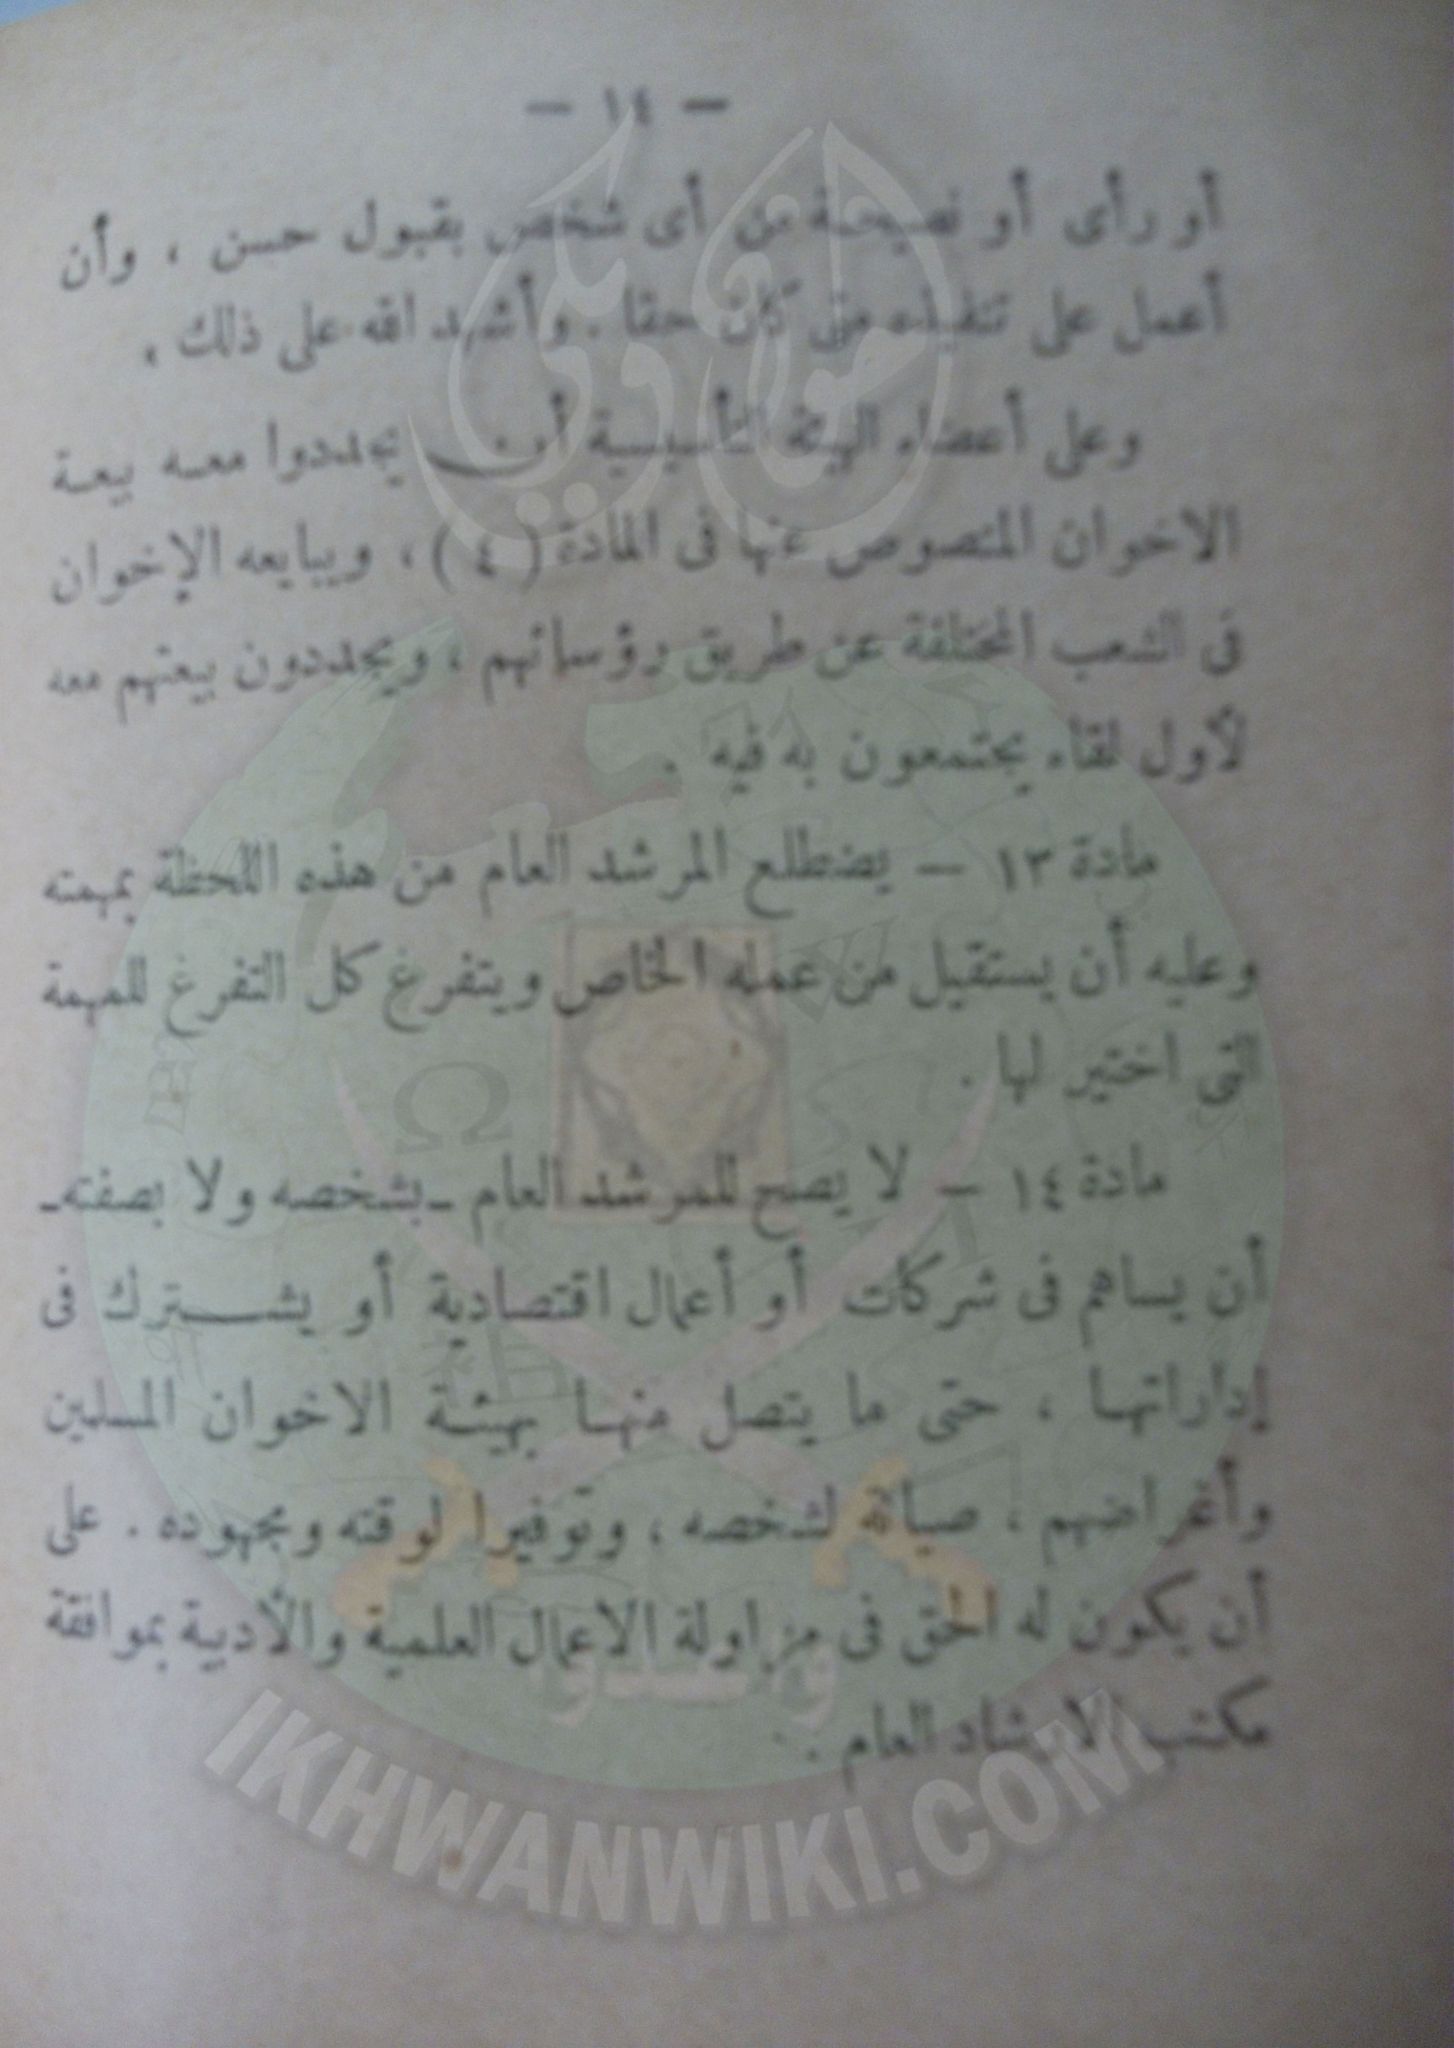 — ١٤ —
أو رأى أو نصيحة من أى شخص بقبول حسن ، وأن
أعمل على تنفيذه متى كان حقا . وأشهد الله على ذلك ،
وعلى أعضاء الهيئة التأسيسية أن يجددوا معه بيعة
الاخوان المنصوص عنها فى المادة ( ٤ ) ، ويبايعه الإخوان
فى الشعب المختلفة عن طريق رؤسائهم ، ويجددون بيعتهم معه
لأول لقاء يجتمعون به فيه .
مادة ١٣ — يضطلع المرشد العام من هذه اللحظة بمهمته
وعليه أن يستقيل من عمله الخاص ويتفرغ كل التفرغ للمهمة
التى اختير لها .
مادة ١٤ — لا يصح للمرشد العام ـ بشخصه ولا بصفته ـ
أن يساهم فى شركات أو أعمال اقتصادية أو يشترك فى
إداراتها ، حتى ما يتصل منها بهيئة الاخوان المسلمين
وأغراضهم ، صيانة لشخصه ، وتوفيرا لوقته ومجهوده . على
أن يكون له الحق فى مزاولة الاعمال العلمية والأدبية بموافقة
مكتب الارشاد العام .
إخوان ويكي
وأعدوا
IKHWANWIKI.COM